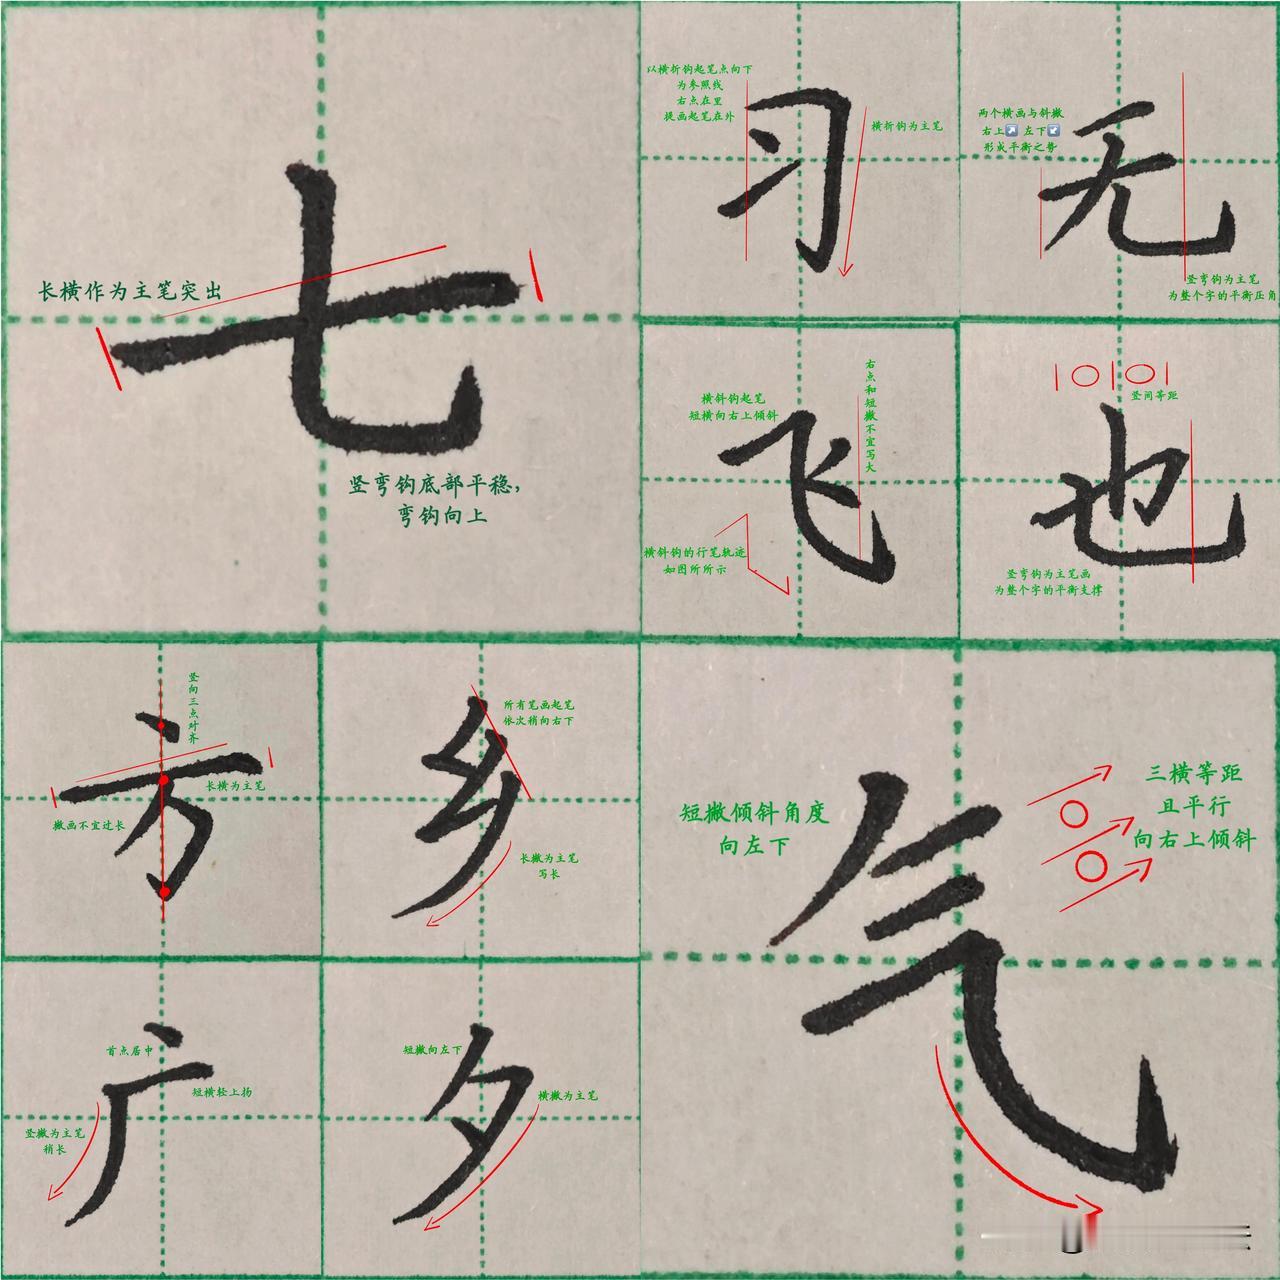 七
长横作为主笔突出
竖弯钩底部平稳，
弯钩向上
习
以横折钩起笔点向下
为参照线
右点在里
提画起笔在外
横折钩为主笔
无
两个横画与斜撇
右上↗ 左下↙
形成平衡之势
竖弯钩为主笔
为整个字的平衡压角
飞
横斜钩起笔
短横向右上倾斜
右点和短撇不宜写大
横斜钩的行笔轨迹
如图所所示
也
竖间等距
竖弯钩为主笔画
为整个字的平衡支撑
方
竖向三点对齐
长横为主笔
撇画不宜过长
乡
所有笔画起笔
依次稍向右下
长撇为主笔
写长
广
首点居中
短横轻上扬
竖撇为主笔
稍长
夕
短撇向左下
横撇为主笔
气
短撇倾斜角度
向左下
三横等距
且平行
向右上倾斜